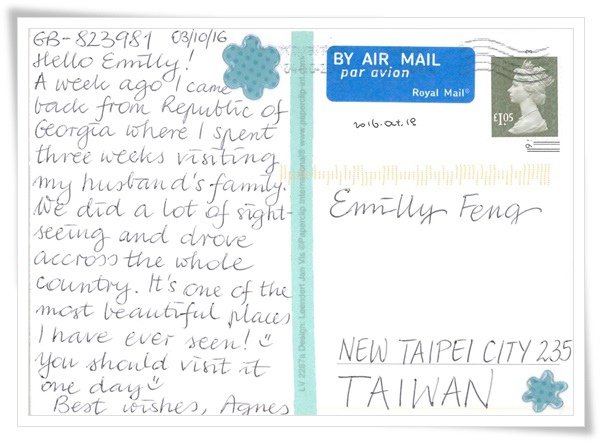 GB-823981 03/10/16
Hello Emilly!
A week ago I came
back from Republic of
Georgia where I spent
three weeks visiting
my husband's family.
We did a lot of sight-
seeing and drove
accross the whole
country. It's one of the
most beautiful places
I have ever seen!
You should visit it
one day
Best wishes, Agnes
LV 2287a Design: Leendert Jan Vis ©Paperclip International® www.paperclip-art.com
BY AIR MAIL
par avion
Royal Mail®
£1.05
2016.oct.18
Emilly Feng
NEW TAIPEI CITY 235
TAIWAN